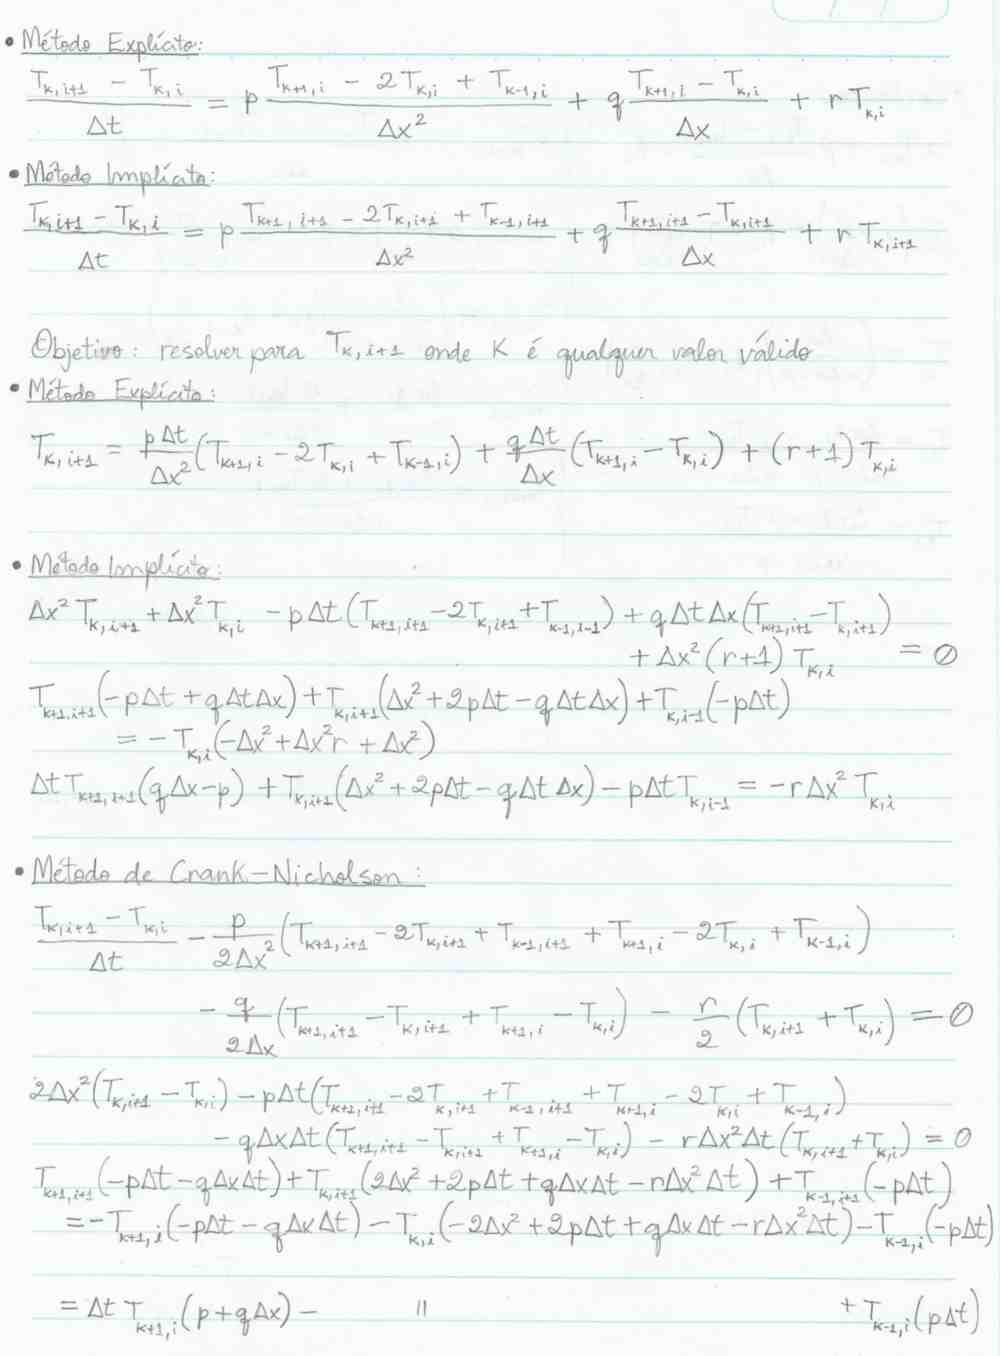 • Método Explícito:
(T_{k,i+1} - T_{k,i})/Δt = p (T_{k+1,i} - 2T_{k,i} + T_{k-1,i})/Δx² + q (T_{k+1,i} - T_{k,i})/Δx + r T_{k,i}
• Método Implícito:
(T_{k,i+1} - T_{k,i})/Δt = p (T_{k+1,i+1} - 2T_{k,i+1} + T_{k-1,i+1})/Δx² + q (T_{k+1,i+1} - T_{k,i+1})/Δx + r T_{k,i+1}
Objetivo: resolver para T_{k,i+1} onde K é qualquer valor válido
• Método Explícito:
T_{k,i+1} = pΔt/Δx² (T_{k+1,i} - 2T_{k,i} + T_{k-1,i}) + qΔt/Δx (T_{k+1,i} - T_{k,i}) + (r+1) T_{k,i}
• Método Implícito:
Δx² T_{k,i+1} + Δx² T_{k,i} - pΔt (T_{k+1,i+1} - 2T_{k,i+1} + T_{k-1,i-1}) + qΔtΔx (T_{k+1,i+1} - T_{k,i+1})
+ Δx² (r+1) T_{k,i} = 0
T_{k+1,i+1} (-pΔt + qΔtΔx) + T_{k,i+1} (Δx² + 2pΔt - qΔtΔx) + T_{k,i-1} (-pΔt)
= -T_{k,i} (-Δx² + Δx²r + Δx²)
Δt T_{k+1,i+1} (qΔx - p) + T_{k,i+1} (Δx² + 2pΔt - qΔtΔx) - pΔt T_{k,i-1} = -rΔx² T_{k,i}
• Método de Crank-Nicholson:
(T_{k,i+1} - T_{k,i})/Δt - p/2Δx² (T_{k+1,i+1} - 2T_{k,i+1} + T_{k-1,i+1} + T_{k+1,i} - 2T_{k,i} + T_{k-1,i})
- q/2Δx (T_{k+1,i+1} - T_{k,i+1} + T_{k+1,i} - T_{k,i}) - r/2 (T_{k,i+1} + T_{k,i}) = 0
2Δx² (T_{k,i+1} - T_{k,i}) - pΔt (T_{k+1,i+1} - 2T_{k,i+1} + T_{k-1,i+1} + T_{k+1,i} - 2T_{k,i} + T_{k-1,i})
- qΔxΔt (T_{k+1,i+1} - T_{k,i+1} + T_{k+1,i} - T_{k,i}) - rΔx²Δt (T_{k,i+1} + T_{k,i}) = 0
T_{k+1,i+1} (-pΔt - qΔxΔt) + T_{k,i+1} (2Δx² + 2pΔt + qΔxΔt - rΔx²Δt) + T_{k-1,i+1} (-pΔt)
= -T_{k+1,i} (-pΔt - qΔxΔt) - T_{k,i} (-2Δx² + 2pΔt + qΔxΔt - rΔx²Δt) - T_{k-1,i} (-pΔt)
= Δt T_{k+1,i} (p + qΔx) - " + T_{k-1,i} (pΔt)